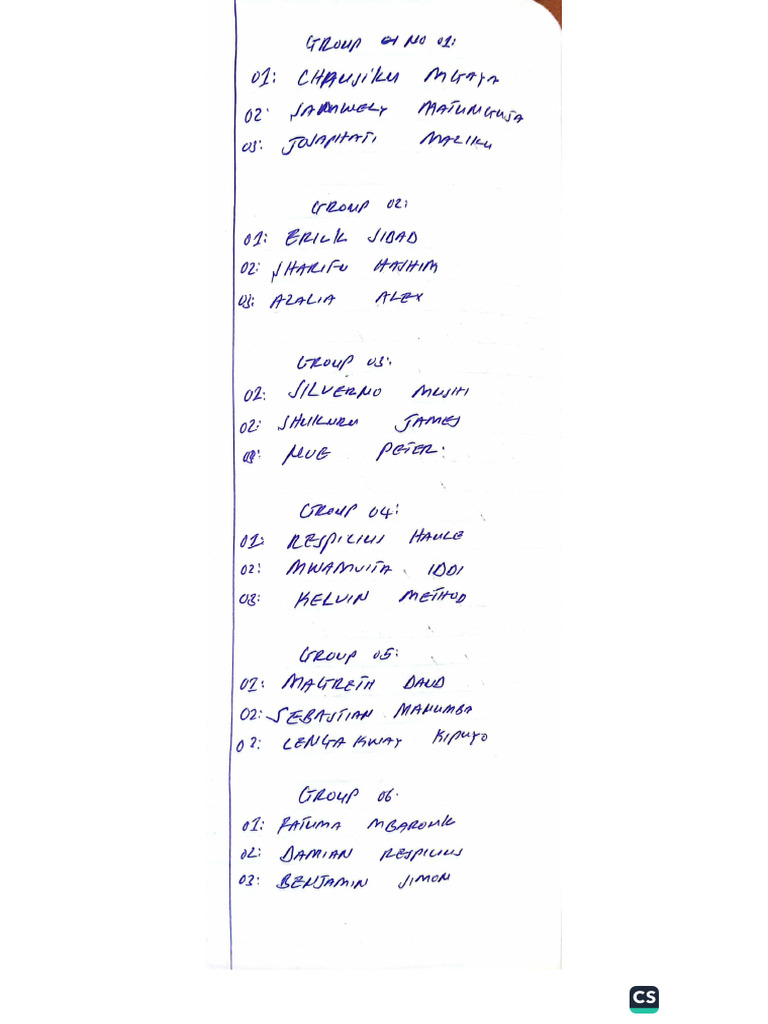 GROUP NO 01:
01: CHAUSIKU MGAYA
02: SAMWELY MATUNGUJA
03: JOSAPHATI MAZIKU
GROUP 02:
01: ERICK SIBAD
02: SHARIFU HASHIM
03: AZALIA ALEX
GROUP 03:
01: SILVERNO MUSHI
02: SHUKURU JAMES
03: PETER:
GROUP 04:
01: RESPILIUS HAULE
02: MWAMVITA IDDI
03: KELVIN METHOD
GROUP 05:
01: MAGRETH DAUD
02: SEBASTIAN MAHUMBA
03: LENGAKWAY KIPUYO
GROUP 06.
01: FATUMA MBAROUK
02: DAMIAN RESPILIUS
03: BENJAMIN SIMON
CS